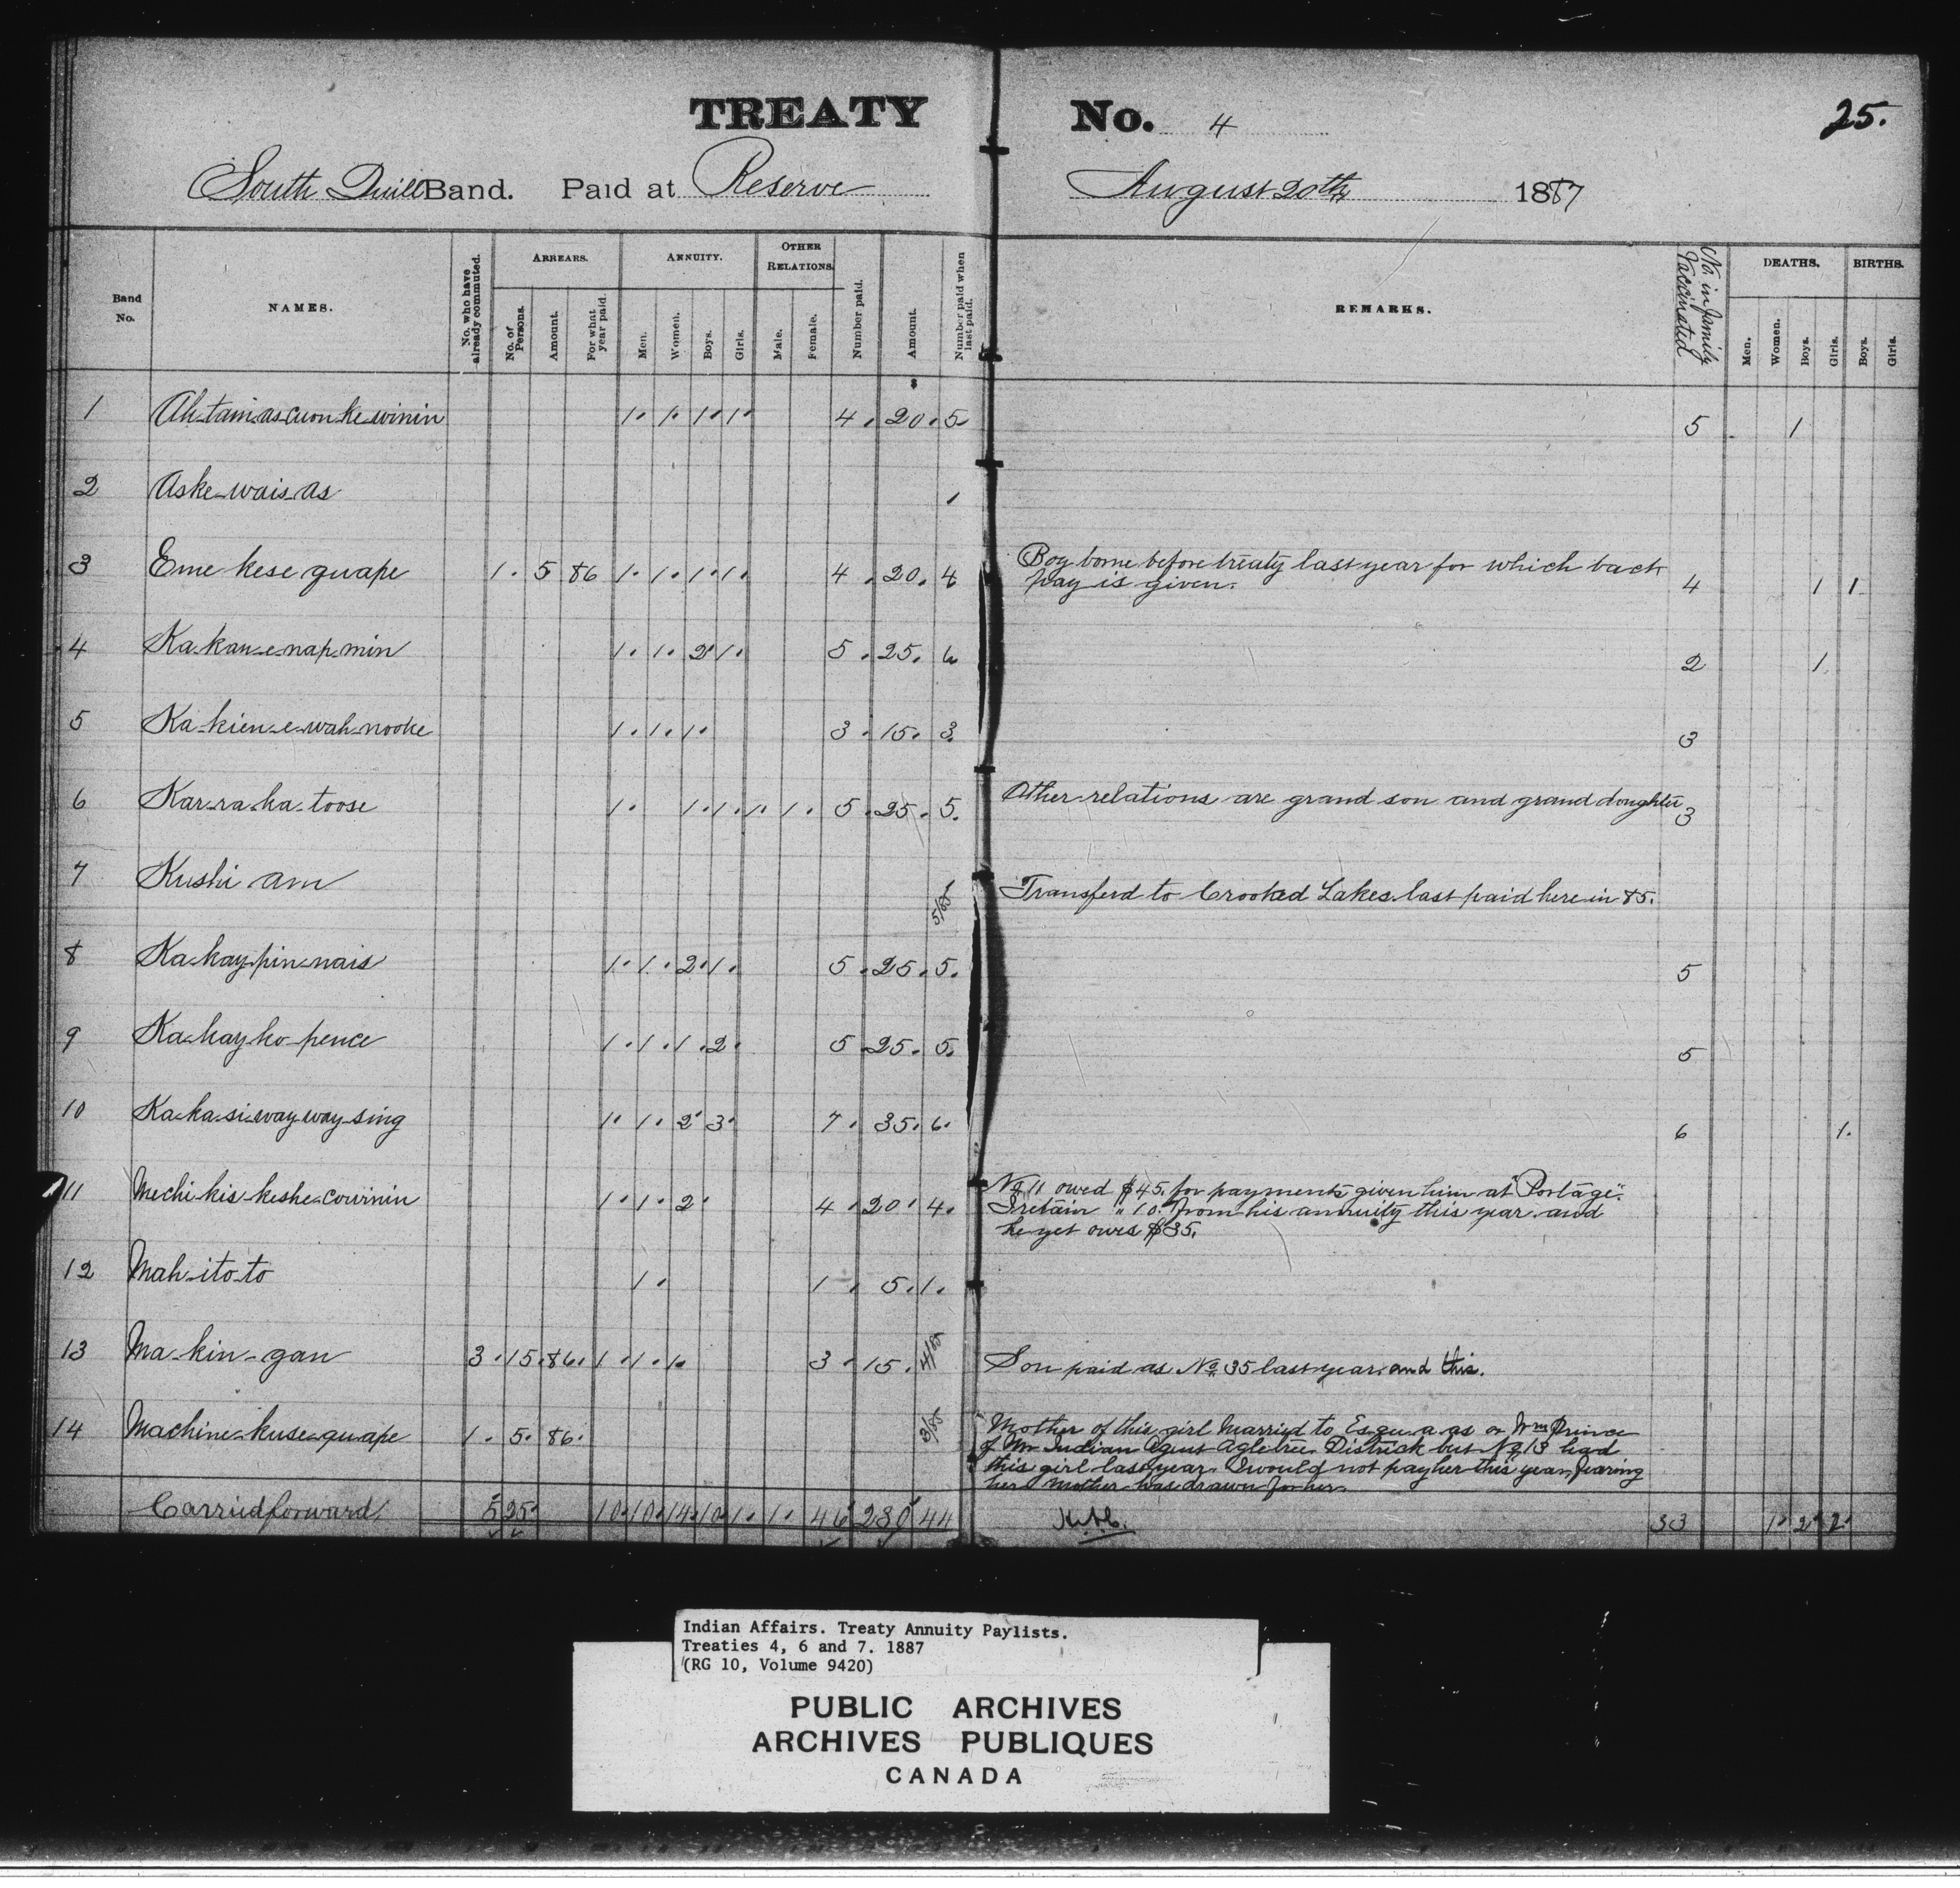 TREATY No. 4 25.
South Quill Band. Paid at Reserve August 20th 1887
Band No. NAMES. No. who have already commuted. ARREARS. No. of Persons. Amount. For what year paid. ANNUITY. Men. Women. Boys. Girls. OTHER RELATIONS. Male. Female. Number paid. Amount. Number paid when last paid. REMARKS. No. in family Vaccinated DEATHS. Men. Women. Boys. Girls. BIRTHS. Boys. Girls.
1 Ah-tam-as-cuon-ke-winin 1. 1. 1. 1. 4. 20. 5. 5 1
2 Aske-wais-as 1
3 Eme kese guape 1. 5 86 1. 1. 1. 1. 4. 20. 4 Boy borne before treaty last year for which back
pay is given. 4 1 1
4 Ka-kau-e-nap-min 1. 1. 2 1. 5. 25. 6 2 1
5 Ka-kien-e-wah-nooke 1. 1. 1. 3. 15. 3. 3
6 Kar-ra-ka-toose 1. 1. 1. 1. 1. 5. 25. 5. Other relations are grand son and grand doughter 3
7 Kushi am 5/85 Transferd to Crooked Lakes last paid here in 85.
8 Ka-kay-pin-nais 1. 1. 2. 1. 5. 25. 5. 5
9 Ka-kay-ko-pence 1. 1. 1. 2. 5 25. 5. 5
10 Ka-ka-si-way-way-sing 1. 1. 2 3. 7. 35. 6. 6 1.
11 Mechi-kis-keshe-cowinin 1. 1. 2. 4. 20. 4. No 11 owed $45. for payments given him at "Portage".
I retain " 10. from his annuity this year and
he yet owes $35.
12 Mah-ito-to 1. 1. 5. 1.
13 Ma-kin-gan 3. 15. 86. 1. 1. 1. 3. 15. 4/85 Son paid as No. 35 last year and this.
14 Machine-kuse-guape 1. 5. 86. 3/85 Mother of this girl Married to Es-qu-a-as or Wm Prince
of Mr Indian Agent Agletree District but No 13 had
this girl last year. I would not pay her this year, fearing
her Mother was drawn for her.
Carried forward. 5 25. 10. 10. 14. 10. 1. 1. 46 230 44 33 1. 2. 2.
Indian Affairs. Treaty Annuity Paylists.
Treaties 4, 6 and 7. 1887
(RG 10, Volume 9420)
PUBLIC ARCHIVES
ARCHIVES PUBLIQUES
CANADA